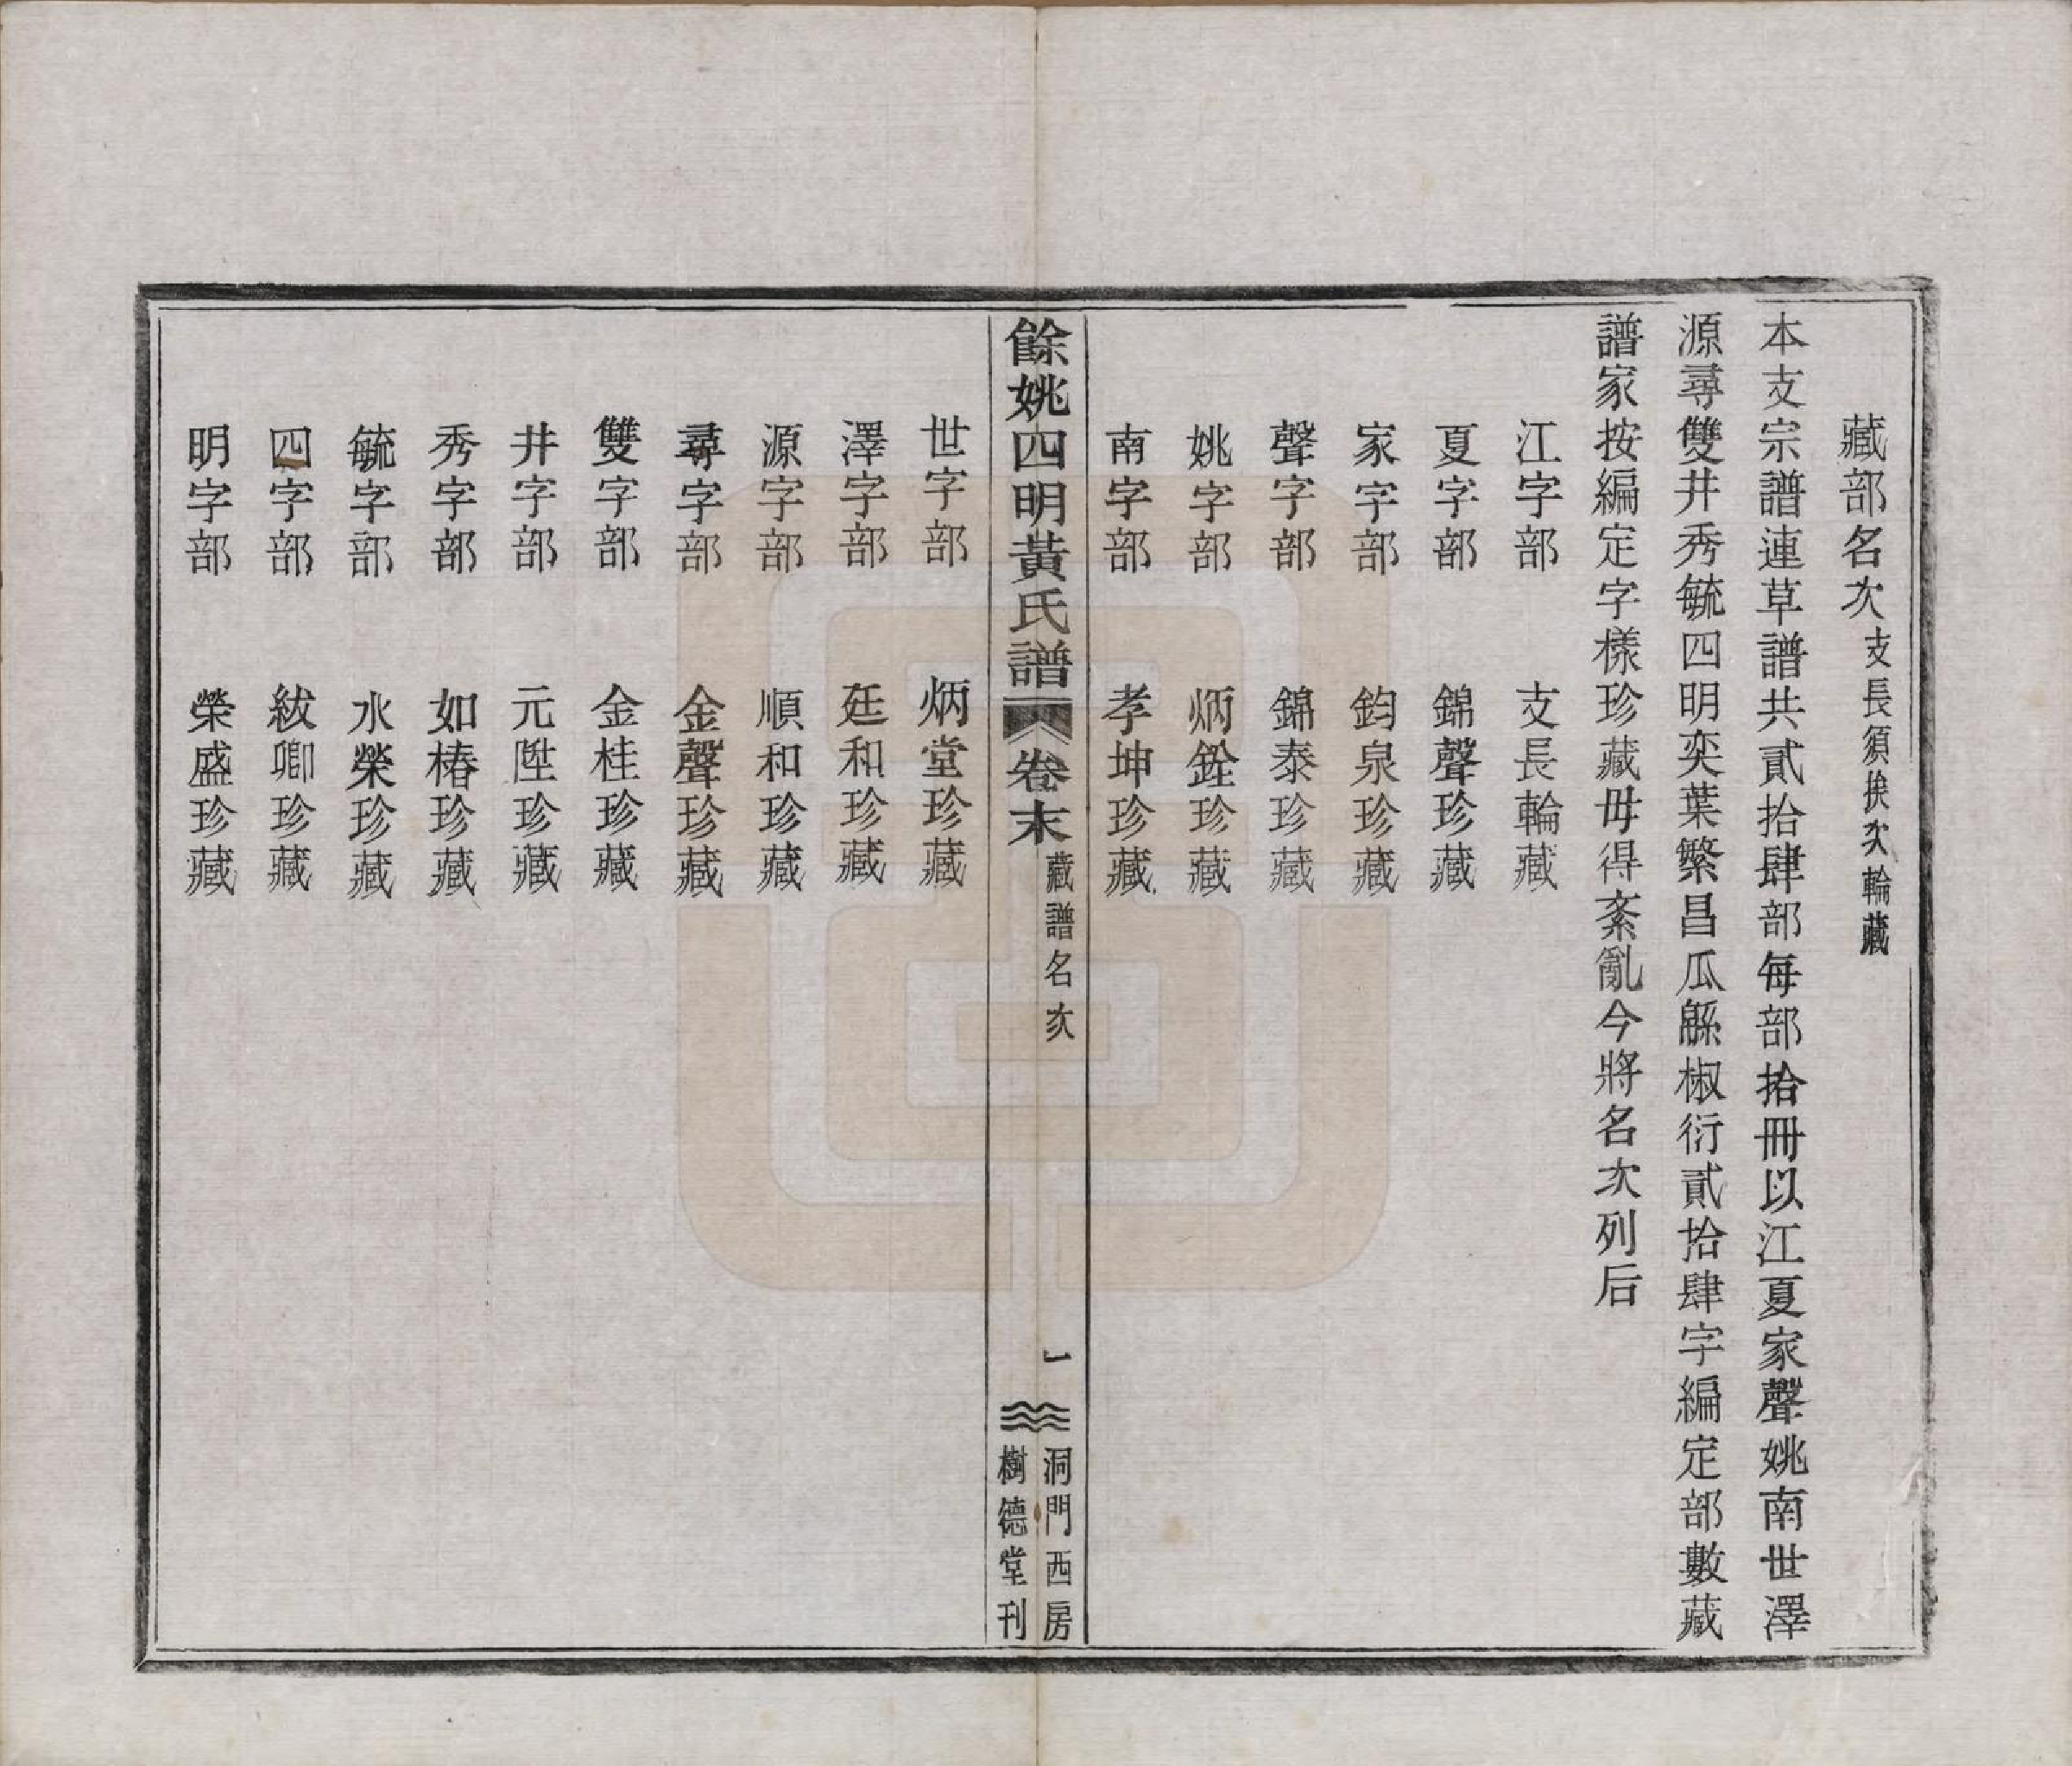 藏部名次支長須挨次輪藏
本支宗譜連草譜共貳拾肆部每部拾冊以江夏家聲姚南世澤
源尋雙井秀毓四明奕葉繁昌瓜緜椒衍貳拾肆字編定部數藏
譜家按編定字樣珍藏毋得紊亂今將名次列后
江字部 支長輪藏
夏字部 錦聲珍藏
家字部 鈞泉珍藏
聲字部 錦泰珍藏
姚字部 炳銓珍藏
南字部 孝坤珍藏
餘姚四明黃氏譜 卷末 藏譜名次 一 洞門西房 樹德堂刊
世字部 炳堂珍藏
澤字部 廷和珍藏
源字部 順和珍藏
尋字部 金聲珍藏
雙字部 金桂珍藏
井字部 元陞珍藏
秀字部 如椿珍藏
毓字部 水榮珍藏
四字部 紱卿珍藏
明字部 榮盛珍藏